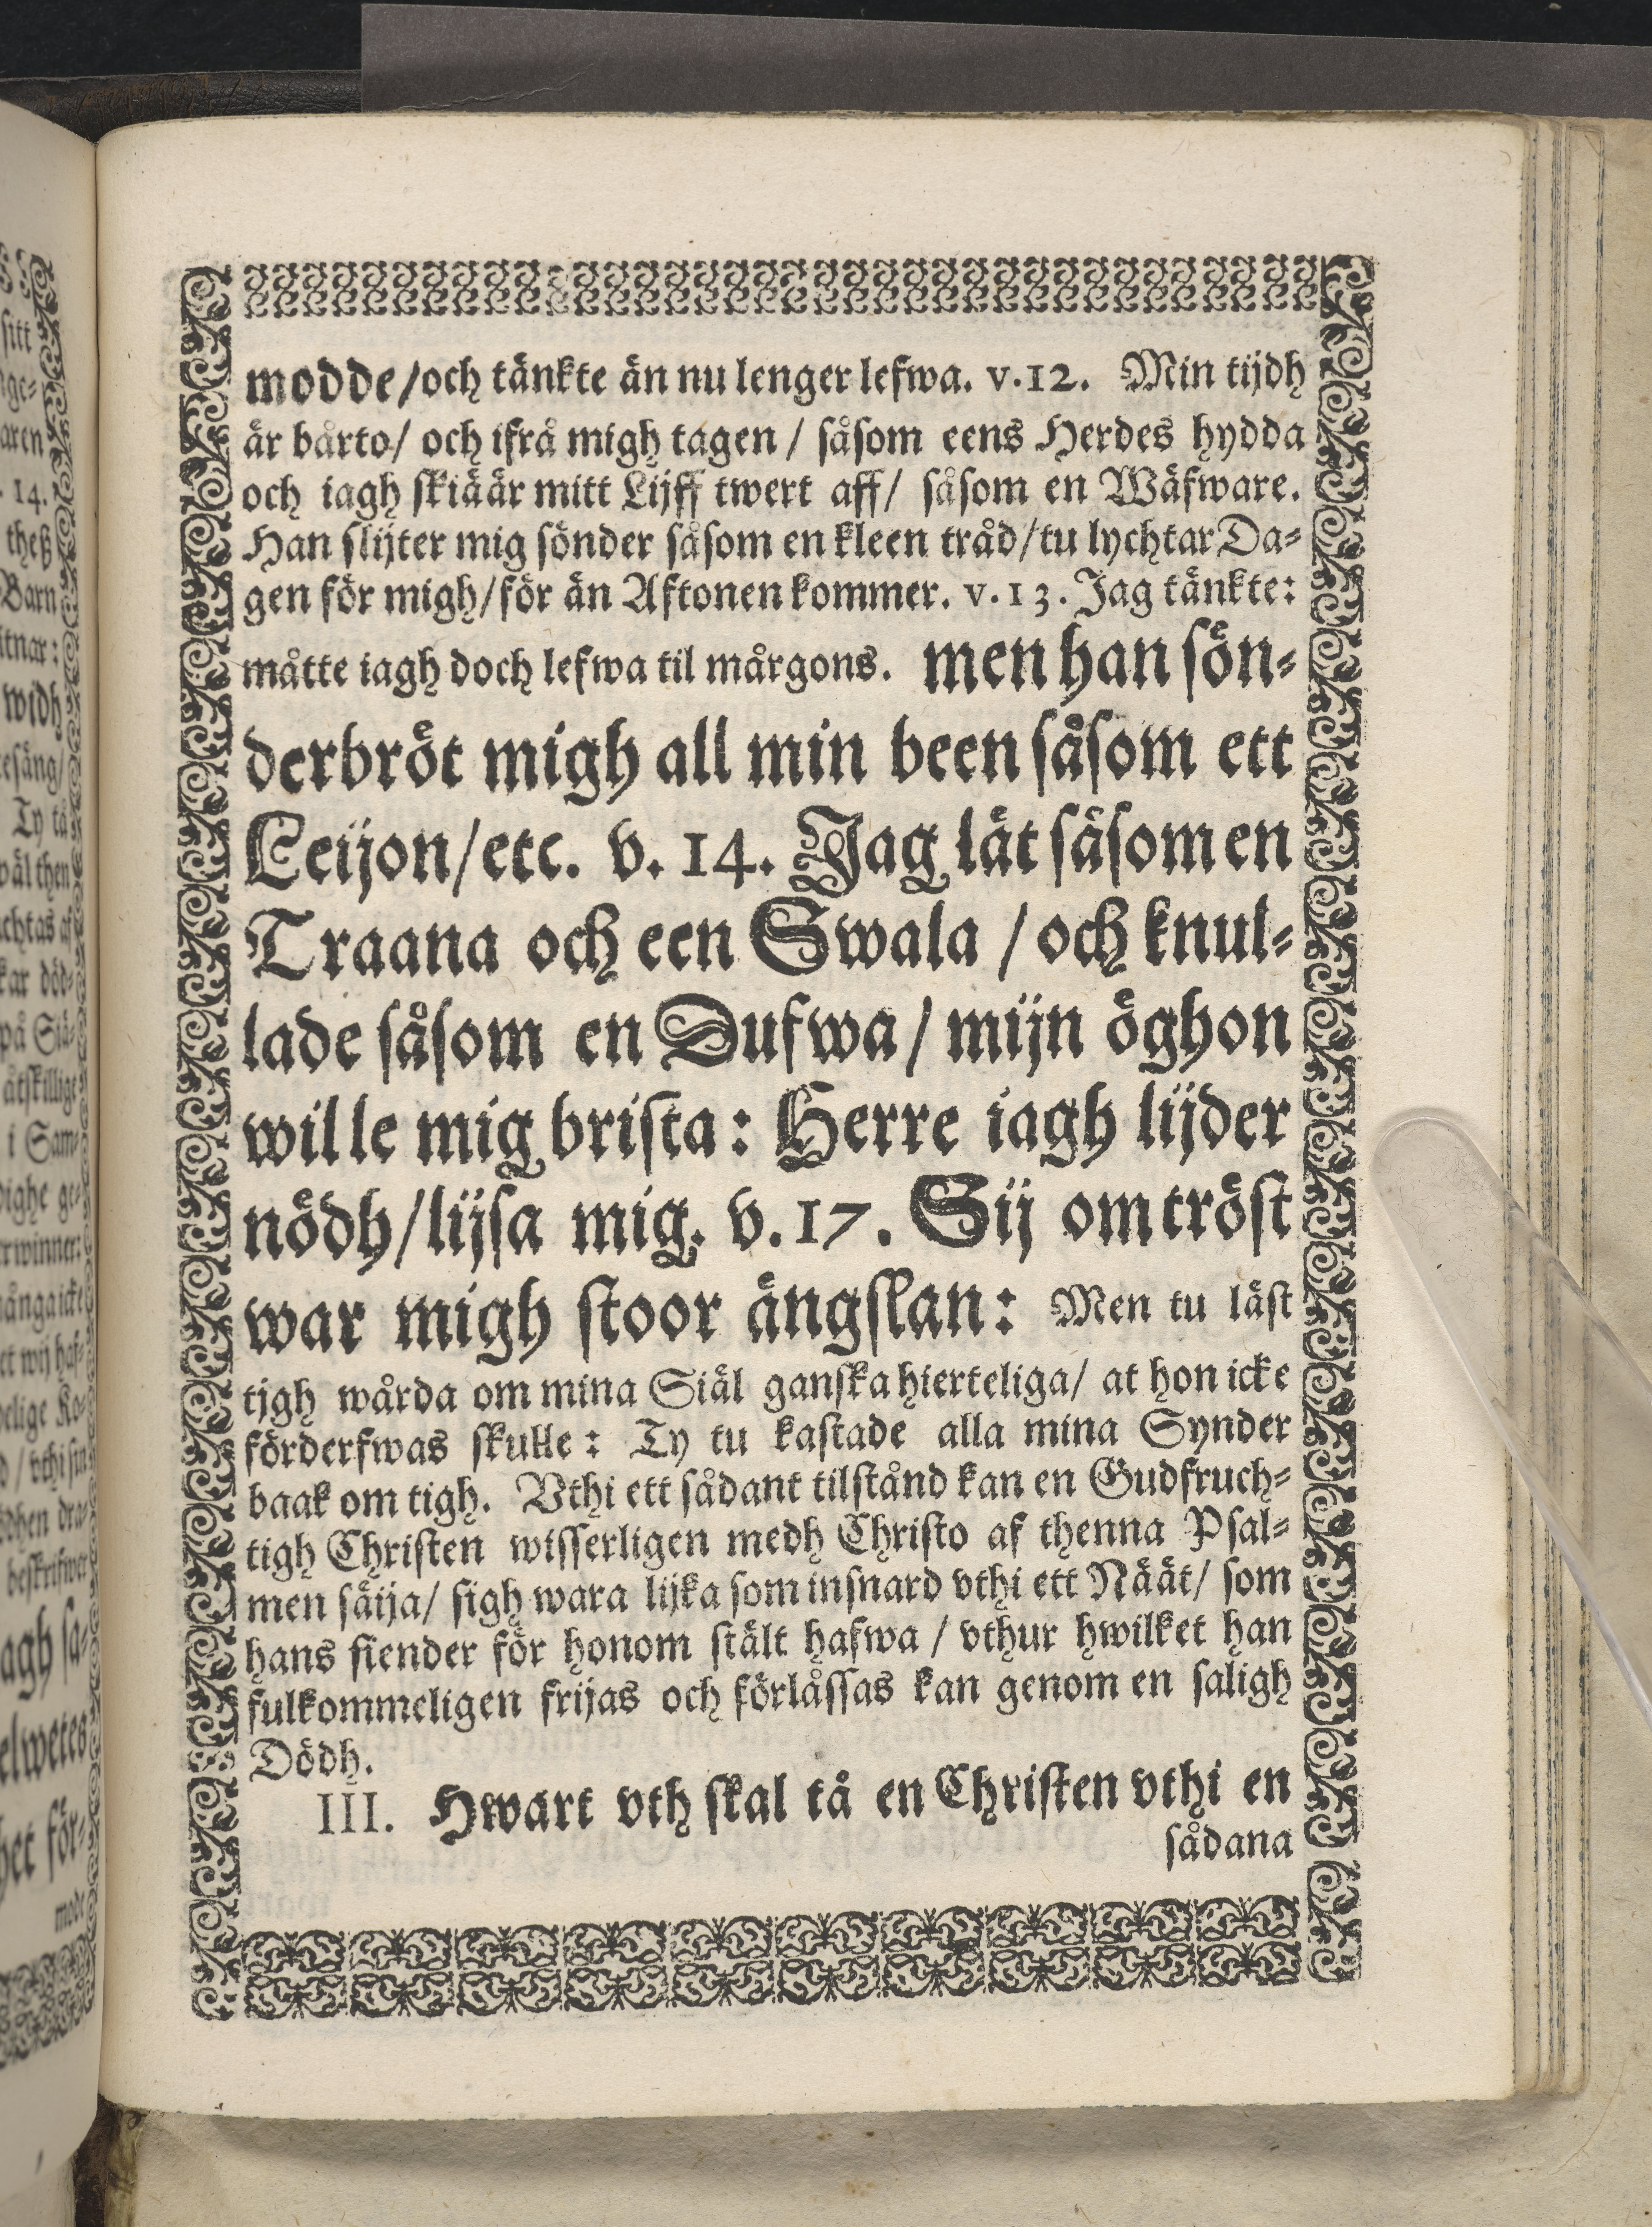 modde/och tänkte än nu lenger lefwa. v.12. Min tijdh
är bårto/ och ifrå migh tagen / såsom eens Herdes hydda
och iagh skiäär mitt Lijff twert aff/ såsom en Wäfware.
Han slijter mig sönder såsom en kleen tråd/tu lychtar Da-
gen för migh/för än Aftonen kommer. v.13. Jag tänkte:
måtte iagh doch lefwa til mårgons. men han sön-
derbröt migh all min been såsom ett
Leijon/etc. v. 14. Jag lät såsom en
Traana och een Swala / och knul-
lade såsom en Dufwa / mijn öghon
wille mig brista: Herre iagh lijder
nödh/lijsa mig. v.17. Sij om tröst
war migh stoor ängslan: Men tu läst
tjgh wårda om mina Siäl ganska hierteliga/ at hon icke
förderfwas skulle: Ty tu kastade alla mina Synder
baak om tigh. Vthi ett sådant tilstånd kan en Gudfruch-
tigh Christen wisserligen medh Christo af thenna Psal-
men säija/ sigh wara lijka som insnard vthi ett Näät/ som
hans fiender för honom stält hafwa / vthur hwilket han
fulkommeligen frijas och förlåssas kan genom en saligh
Dödh.
III. Hwart vth skal tå en Christen vthi en
sådana